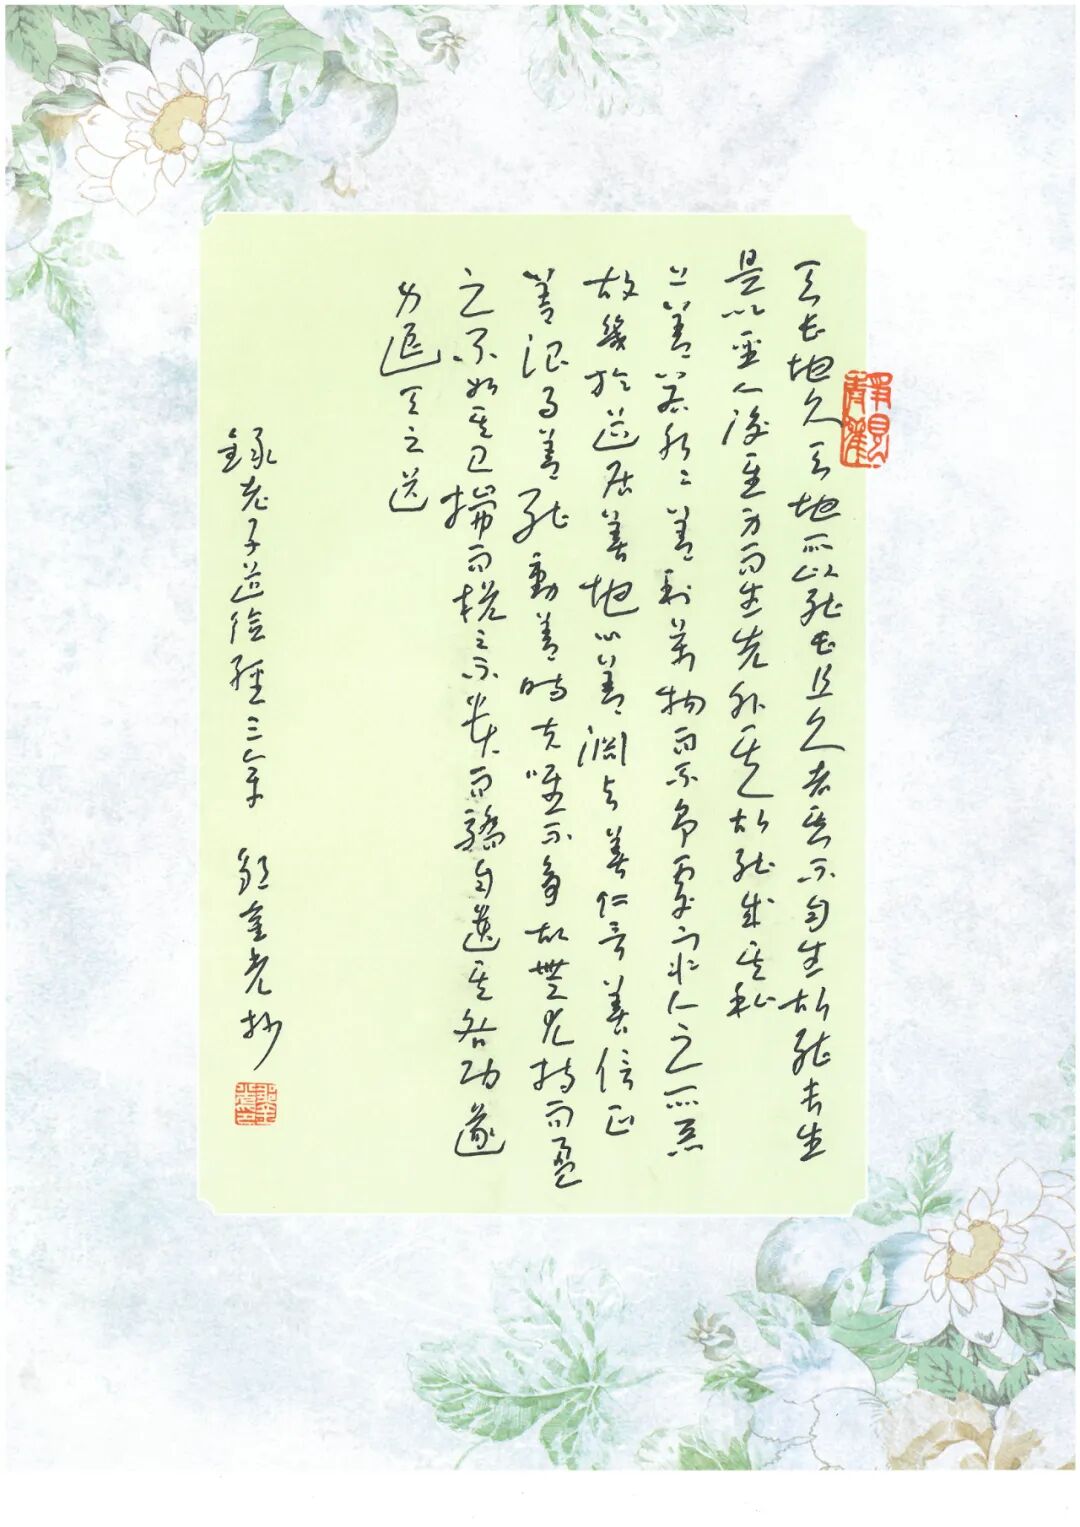 靜觀
天長地久天地所以能長且久者其不自生故能長生
是以聖人後其身而身先外其身故能成其私
上善若水水善利萬物而不爭處衆人之所惡
故幾於道居善地心善淵與善仁言善信正
善治事善能動善時夫唯不爭故無尤持而盈
之不如其已揣而梲之不貴而驕自遺其咎功遂
身退天之道
錄老子道德經三章 金光抄